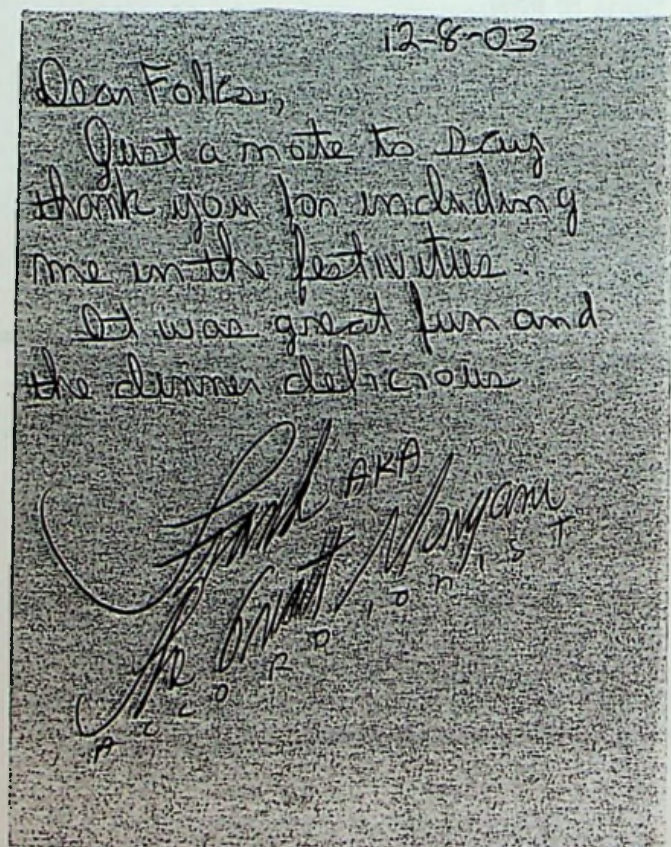 12-8-03
Dear Folks,
Just a note to say
thank you for including
me in the festivities.
It was great fun and
the dinner delicious
Frank AKA
The Great Morgani
ACCORDIONIST